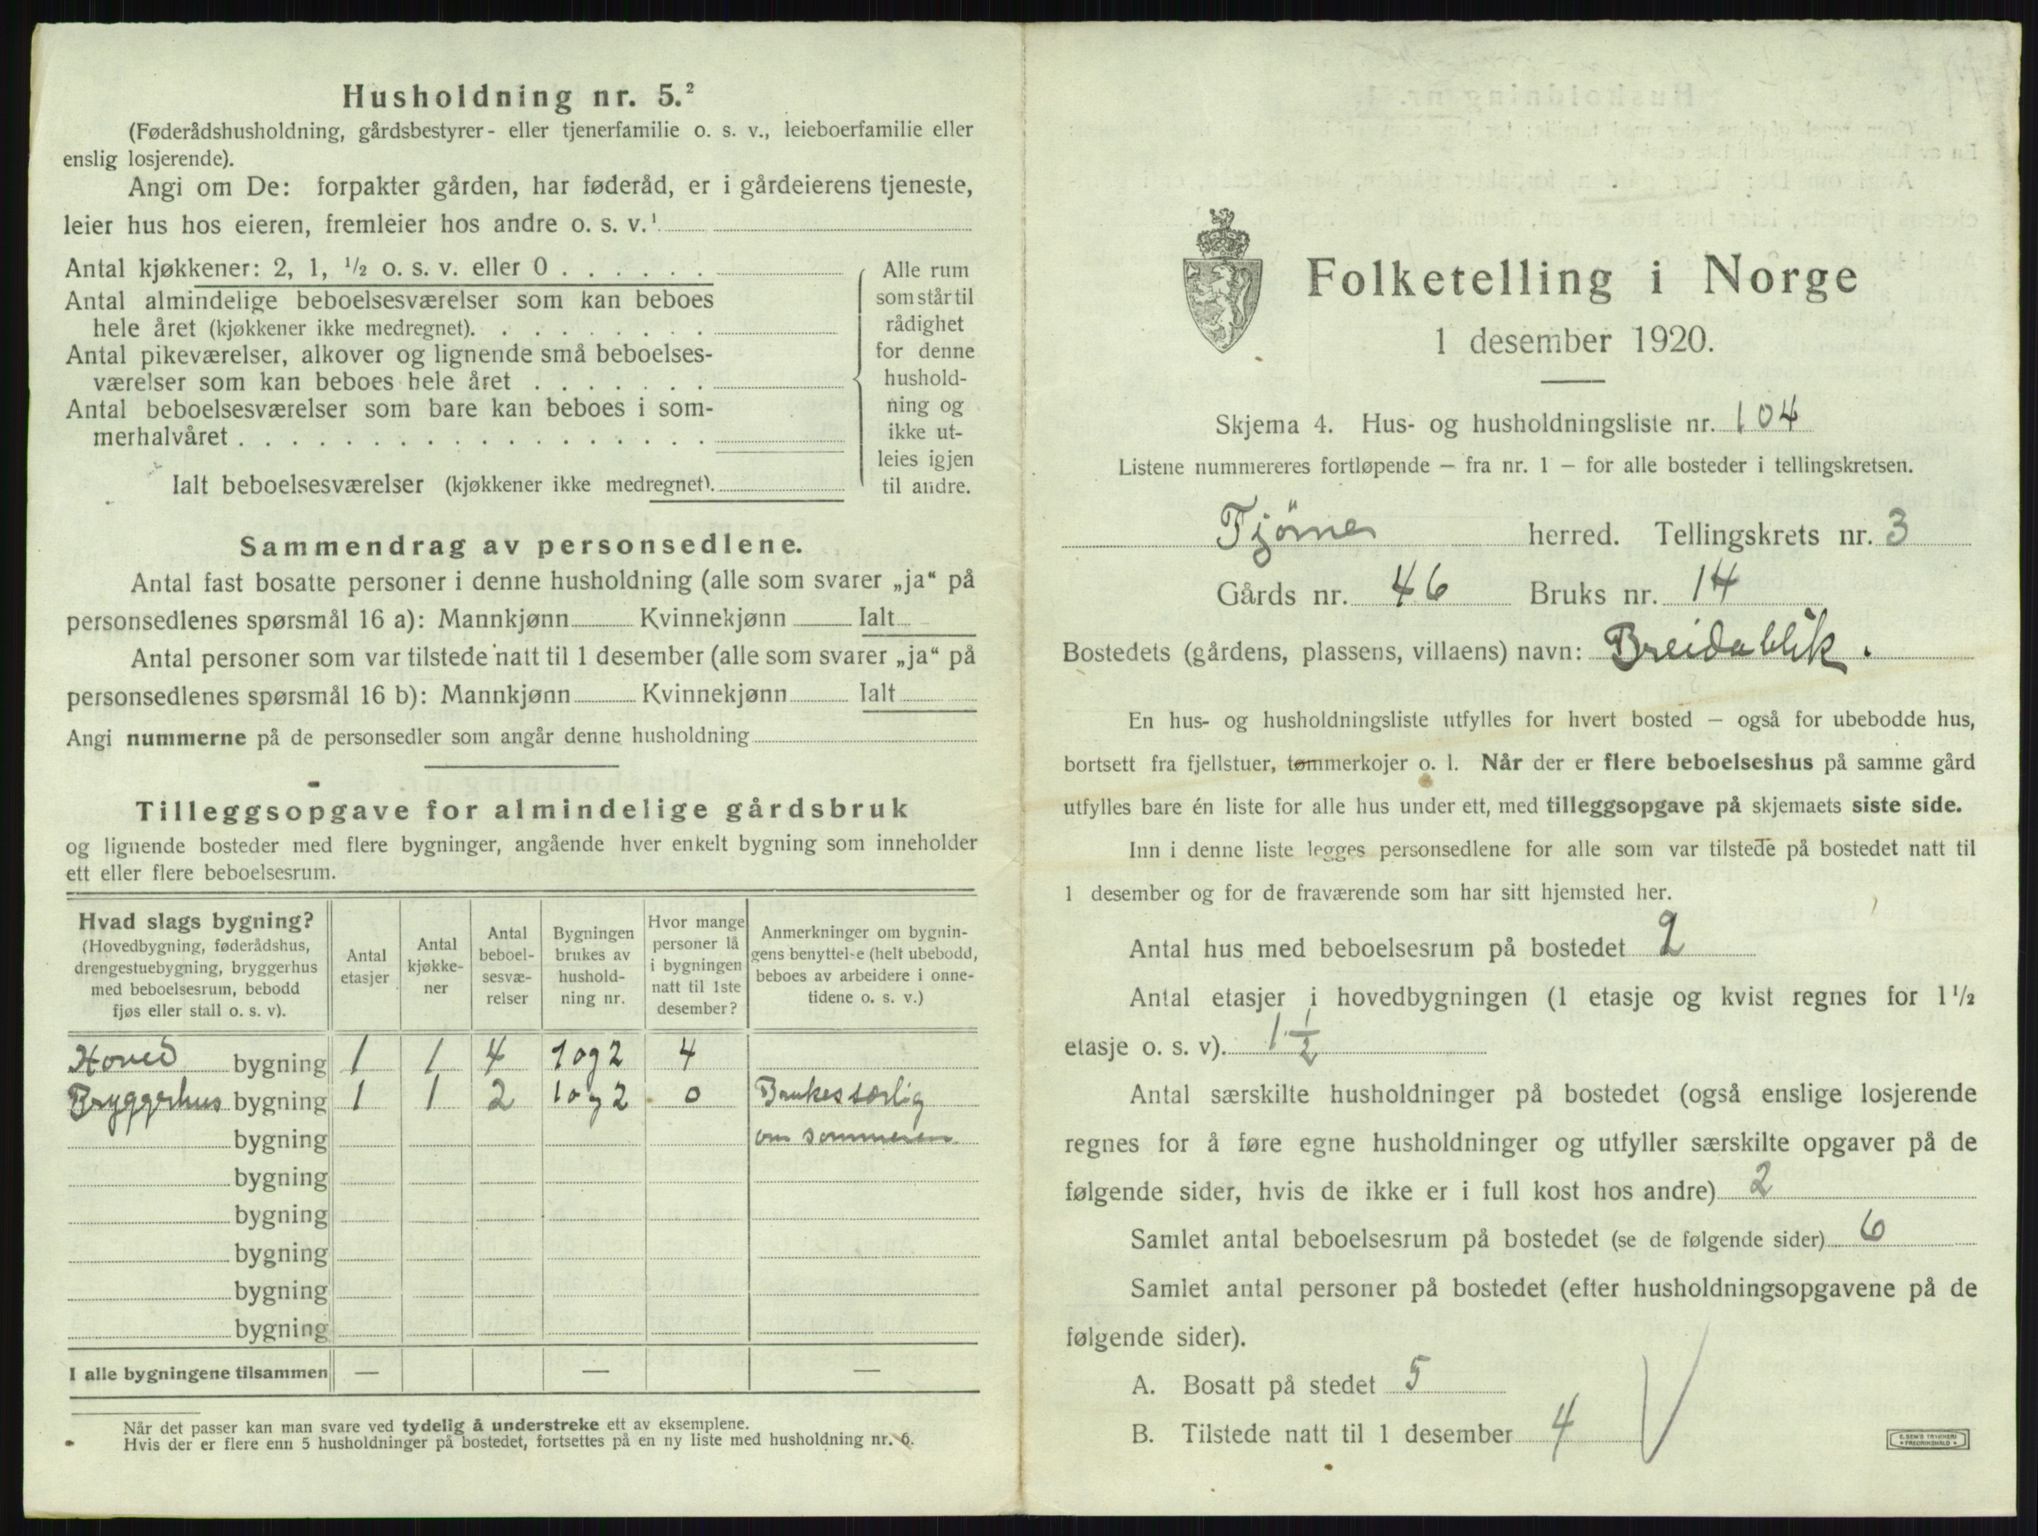 Husholdning nr. 5.²
(Føderådshusholdning, gårdsbestyrer- eller tjenerfamilie o. s. v., leieboerfamilie eller
enslig losjerende).
Angi om De: forpakter gården, har føderåd, er i gårdeierens tjeneste,
leier hus hos eieren, fremleier hos andre o. s. v.¹
Antal kjøkkener: 2, 1, ½ o. s. v. eller 0 . . . . . .
Antal almindelige beboelsesværelser som kan beboes
hele året (kjøkkener ikke medregnet). . . . . . . . .
Antal pikeværelser, alkover og lignende små beboelses-
værelser som kan beboes hele året . . . . . . .
Antal beboelsesværelser som bare kan beboes i som-
merhalvåret . . . . . . . . . . . . . . . . . .
Ialt beboelsesværelser (kjøkkener ikke medregnet).
Alle rum
som står til
rådighet
for denne
hushold-
ning og
ikke ut-
leies igjen
til andre.
Sammendrag av personsedlene.
Antal fast bosatte personer i denne husholdning (alle som svarer „ja“ på
personsedlenes spørsmål 16 a): Mannkjønn Kvinnekjønn Ialt
Antal personer som var tilstede natt til 1 desember (alle som svarer „ja“ på
personsedlenes spørsmål 16 b): Mannkjønn Kvinnekjønn Ialt
Angi nummerne på de personsedler som angår denne husholdning
Tilleggsopgave for almindelige gårdsbruk
og lignende bosteder med flere bygninger, angående hver enkelt bygning som inneholder
ett eller flere beboelsesrum.
Hvad slags bygning?
(Hovedbygning, føderådshus,
drengestuebygning, bryggerhus
med beboelsesrum, bebodd
fjøs eller stall o. s. v).
Antal
etasjer
Antal
kjøkke-
ner
Antal
beboel-
sesvæ-
relser
Bygningen
brukes av
hushold-
ning nr.
Hvor mange
personer lå
i bygningen
natt til 1ste
desember?
Anmerkninger om bygnin-
gens benyttelse (helt ubebodd,
beboes av arbeidere i onne-
tidene o. s. v.)
Hoved bygning 1 1 4 1 og 2 4
Bryggerhus bygning 1 1 2 1 og 2 0 Brukes særlig
bygning om sommeren
bygning
bygning
bygning
bygning
bygning
I alle bygningene tilsammen — — —
Når det passer kan man svare ved tydelig å understreke ett av eksemplene.
Hvis der er flere enn 5 husholdninger på bostedet, fortsettes på en ny liste med husholdning nr. 6.
Folketelling i Norge
1 desember 1920.
Skjema 4. Hus- og husholdningsliste nr. 104
Listene nummereres fortløpende — fra nr. 1 — for alle bosteder i tellingskretsen.
Tjøme herred. Tellingskrets nr. 3
Gårds nr. 46 Bruks nr. 14
Bostedets (gårdens, plassens, villaens) navn: Breidablik.
En hus- og husholdningsliste utfylles for hvert bosted — også for ubebodde hus,
bortsett fra fjellstuer, tømmerkojer o. l. Når der er flere beboelseshus på samme gård
utfylles bare én liste for alle hus under ett, med tilleggsopgave på skjemaets siste side.
Inn i denne liste legges personsedlene for alle som var tilstede på bostedet natt til
1 desember og for de fraværende som har sitt hjemsted her.
Antal hus med beboelsesrum på bostedet 2
Antal etasjer i hovedbygningen (1 etasje og kvist regnes for 1½
etasje o. s. v). 1 ½
Antal særskilte husholdninger på bostedet (også enslige losjerende
regnes for å føre egne husholdninger og utfyller særskilte opgaver på de
følgende sider, hvis de ikke er i full kost hos andre) 2
Samlet antal beboelsesrum på bostedet (se de følgende sider) 6
Samlet antal personer på bostedet (efter husholdningsopgavene på de
følgende sider).
A. Bosatt på stedet 5
B. Tilstede natt til 1 desember 4